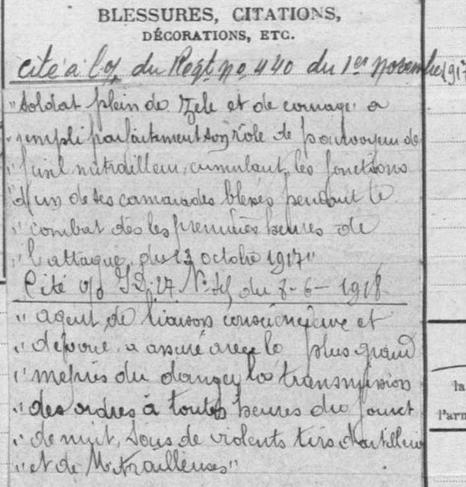 BLESSURES, CITATIONS,
DÉCORATIONS, ETC.
Cité à l'o/ du Regt no 440 du 1er novembre 1917
"Soldat plein de zele et de courage a
rempli parfaitement son role de pourvoyeur de
" fusil mitrailleur, cumulant les fonctions
"d'un de ses camarades blessés pendant le
" combat dès les premières heures de
" l'attaque du 23 octobre 1917"
Cité o/o du 8-6-1918
" agent de liaison consciencieux et
" dévoué, a assuré avec le plus grand
" mépris du danger la transmission
" des ordres à toutes heures du jour et
" de nuit, sous de violents tirs d'artillerie
" et de Mitrailleuses"
la
l'arm